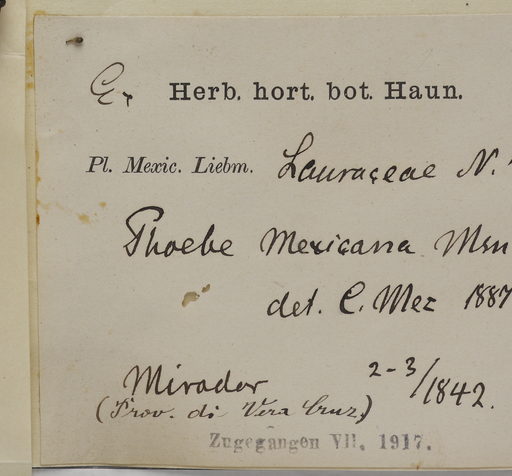 Ex Herb. hort. bot. Haun.
Pl. Mexic. Liebm. Lauraceae N.
Phoebe Mexicana Msn
det. C. Mez 1887
Mirador 2-3/1842.
(Prov. di Vera Cruz)
Zugegangen VII. 1917.